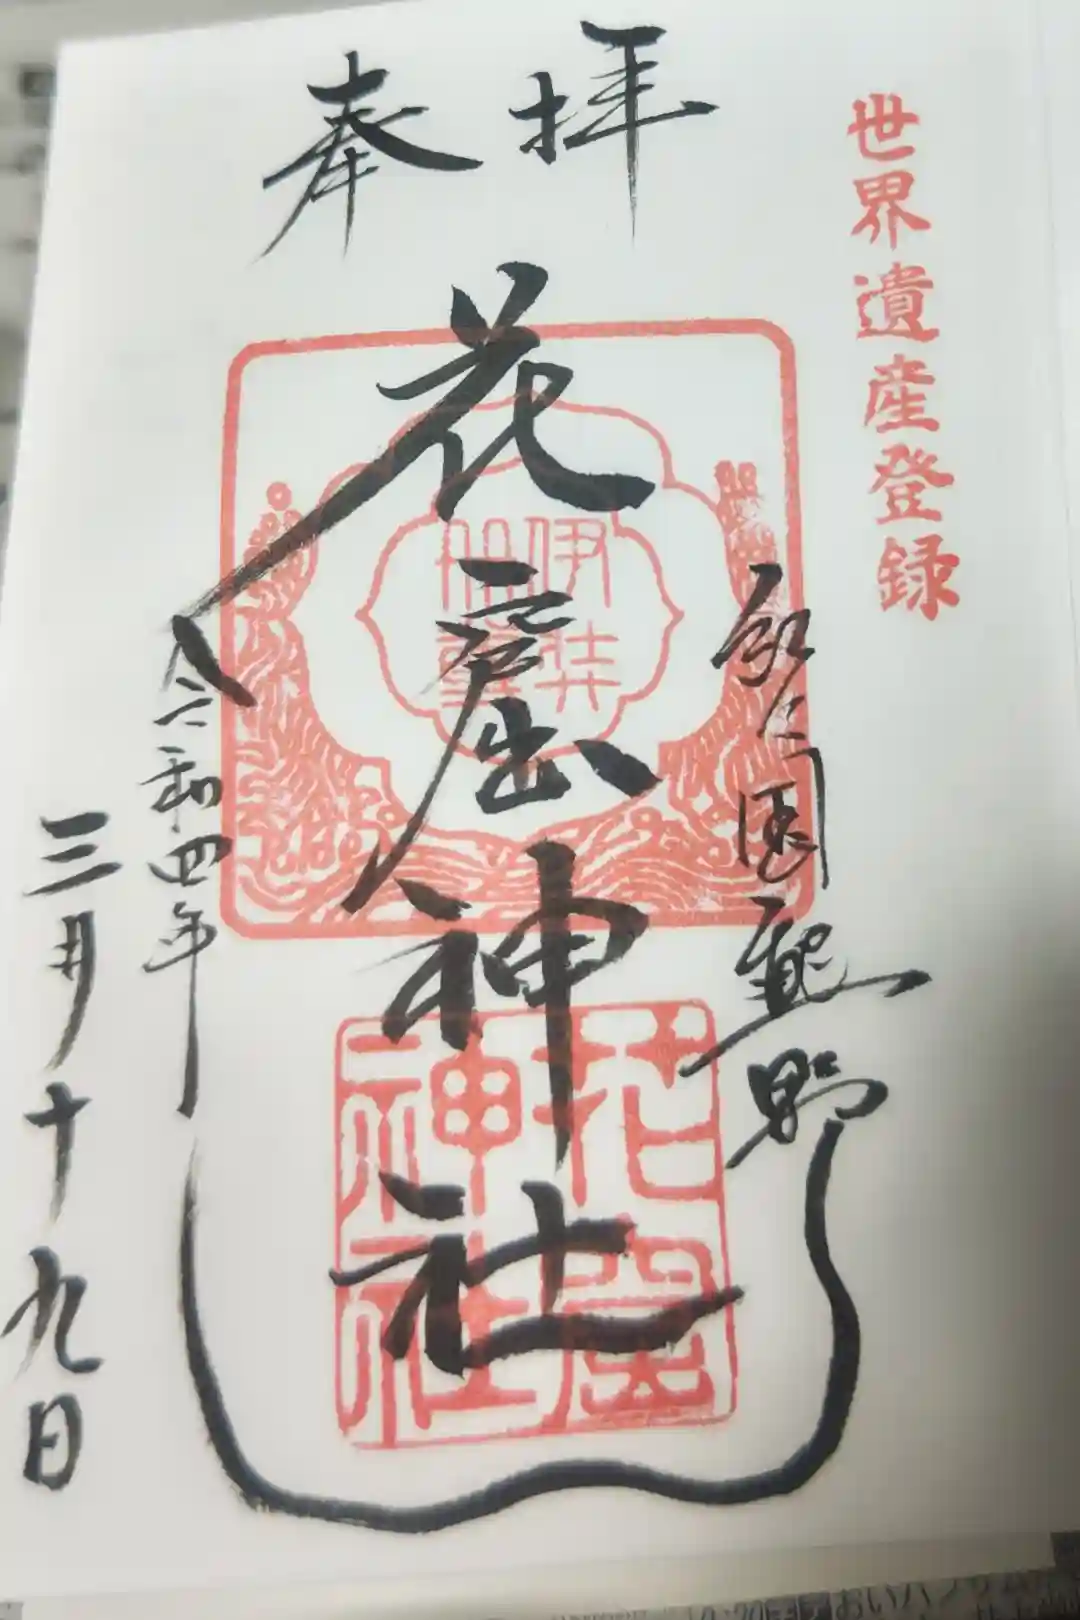 世界遺産登録
奉拝
紀伊国熊野
花窟神社
伊弉冊尊
花窟神社
令和四年
三月十九日